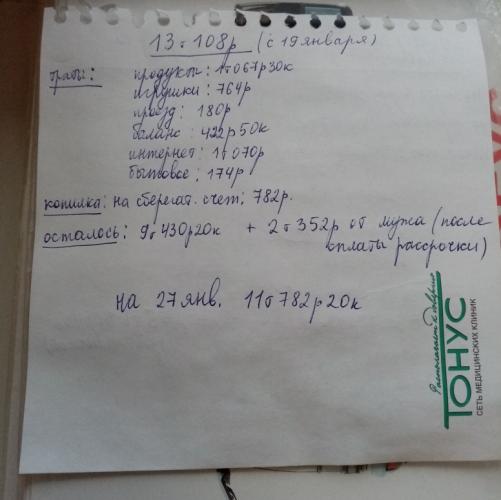 13т108р (с 19 января)
траты: продукты: 1т067р30к
игрушки: 764р
проезд: 180р
баланс: 422р50к
интернет: 1т070р
бытовое: 174р
копилка: на сберегат. счет: 782р.
осталось: 9т430р20к + 2т352р от мужа (после
оплаты рассрочки)
на 27 янв. 11т782р20к
Располагает к доверию
ТОНУС
СЕТЬ МЕДИЦИНСКИХ КЛИНИК